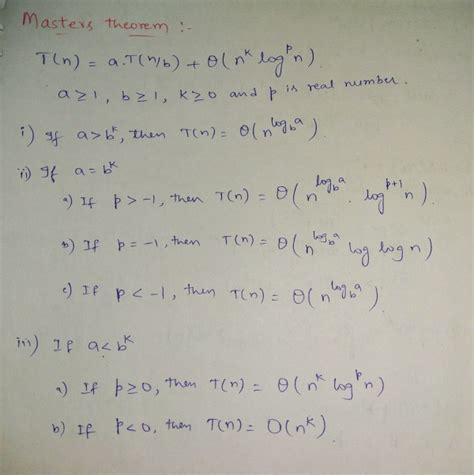 Masters theorem :-
T(n) = a.T(n/b) + θ(n^k log^p n).
a ≥ 1, b ≥ 1, k ≥ 0 and p is real number.
i) If a > b^k, then T(n) = θ(n^{log_b a}).
ii) If a = b^k
a) If p > -1, then T(n) = θ(n^{log_b a} . log^{p+1} n).
b) If p = -1, then T(n) = θ(n^{log_b a} log log n)
c) If p < -1, then T(n) = θ(n^{log_b a})
iii) If a < b^k
a) If p ≥ 0, then T(n) = θ(n^k log^p n)
b) If p < 0, then T(n) = O(n^k)